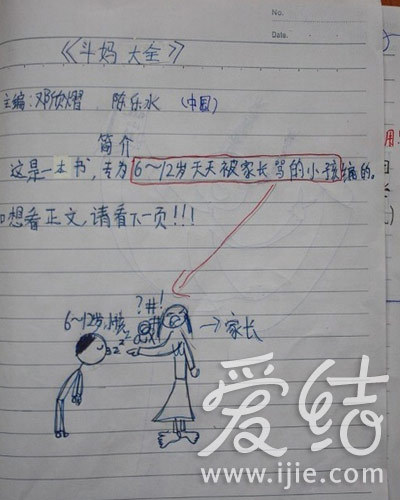 No.
Date.
《斗妈大全》
主编:邓欣熠 陈乐水 (中国)
简介
这是一本书,专为6~12岁天天被家长骂的小孩编的,
想看正文,请看下一页!!!
?#!
6~12岁小孩
zzz
→家长
爱结
www.ijie.com